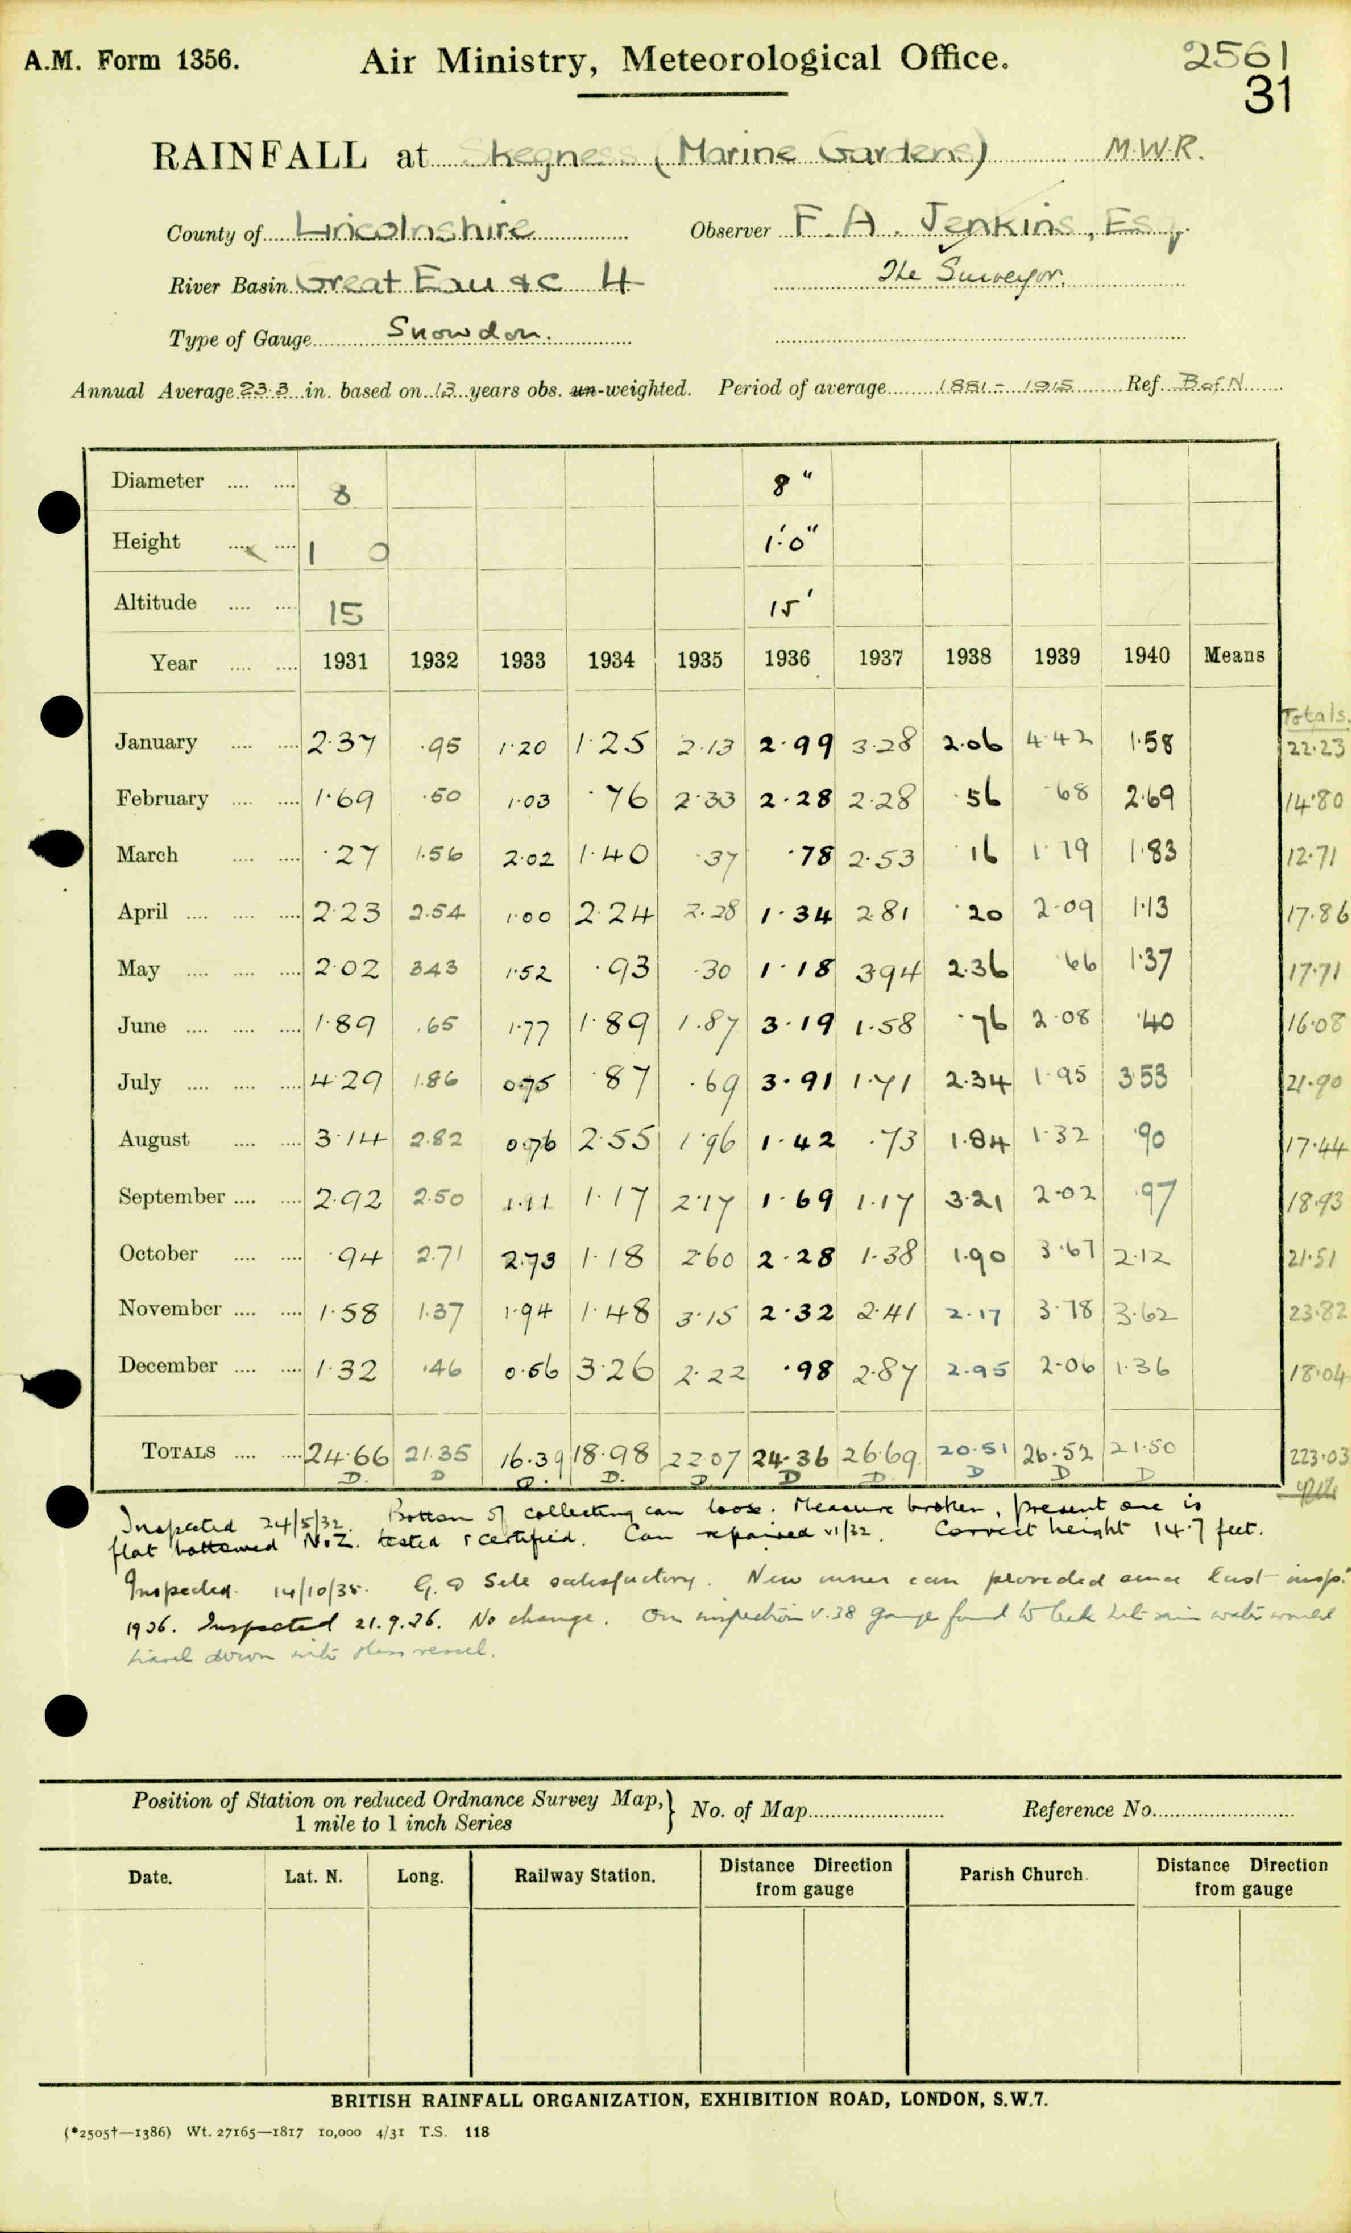 A.M. Form 1356. Air Ministry, Meteorological Office. 2561
31
RAINFALL at Skegness (Marine Gardens) M.W.R.
County of Lincolnshire Observer F. A. Jenkins, Esq.
River Basin Great Eau &c 4 The Surveyor.
Type of Gauge Snowdon.
Annual Average 23.3 in. based on 13 years obs. un-weighted. Period of average 1881-1915 Ref. B of N
Diameter 8 8"
Height 1 0 1'.0"
Altitude 15 15'
Year 1931 1932 1933 1934 1935 1936 1937 1938 1939 1940 Means
Totals.
January 2.37 .95 1.20 1.25 2.13 2.99 3.28 2.06 4.42 1.58 22.23
February 1.69 .50 1.03 .76 2.33 2.28 2.28 .56 .68 2.69 14.80
March .27 1.56 2.02 1.40 .37 .78 2.53 .16 1.79 1.83 12.71
April 2.23 2.54 1.00 2.24 2.28 1.34 2.81 .20 2.09 1.13 17.86
May 2.02 3.43 1.52 .93 .30 1.18 3.94 2.36 .66 1.37 17.71
June 1.89 .65 1.77 1.89 1.87 3.19 1.58 .76 2.08 .40 16.08
July 4.29 1.86 0.75 .87 .69 3.91 1.71 2.34 1.95 3.53 21.90
August 3.14 2.82 0.76 2.55 1.96 1.42 .73 1.84 1.32 .90 17.44
September 2.92 2.50 1.11 1.17 2.17 1.69 1.17 3.21 2.02 .97 18.93
October .94 2.71 2.73 1.18 2.60 2.28 1.38 1.90 3.67 2.12 21.51
November 1.58 1.37 1.94 1.48 3.15 2.32 2.41 2.17 3.78 3.62 23.82
December 1.32 .46 0.56 3.26 2.22 .98 2.87 2.95 2.06 1.36 18.04
TOTALS 24.66 21.35 16.39 18.98 22.07 24.36 26.69 20.51 26.52 21.50 223.03
D. D D. D. D. D D. D D D
Inspected 24/5/32. Bottom of collecting can loose. Measure broken, present one is
flat bottomed N.Z. tested & certified. Can repaired vi/32. Correct height 14.7 feet.
Inspected 14/10/35. Site satisfactory. New inner can provided since last insp:
1936. Inspected 21.9.36. No change. On inspection V.38 gauge found to leak but rain water would
travel down into glass vessel.
Position of Station on reduced Ordnance Survey Map,} No. of Map Reference No.
1 mile to 1 inch Series
Date. Lat. N. Long. Railway Station. Distance Direction from gauge Parish Church. Distance Direction from gauge
BRITISH RAINFALL ORGANIZATION, EXHIBITION ROAD, LONDON, S.W.7.
(*2505†—1386) Wt. 27165—1817 10,000 4/31 T.S. 118